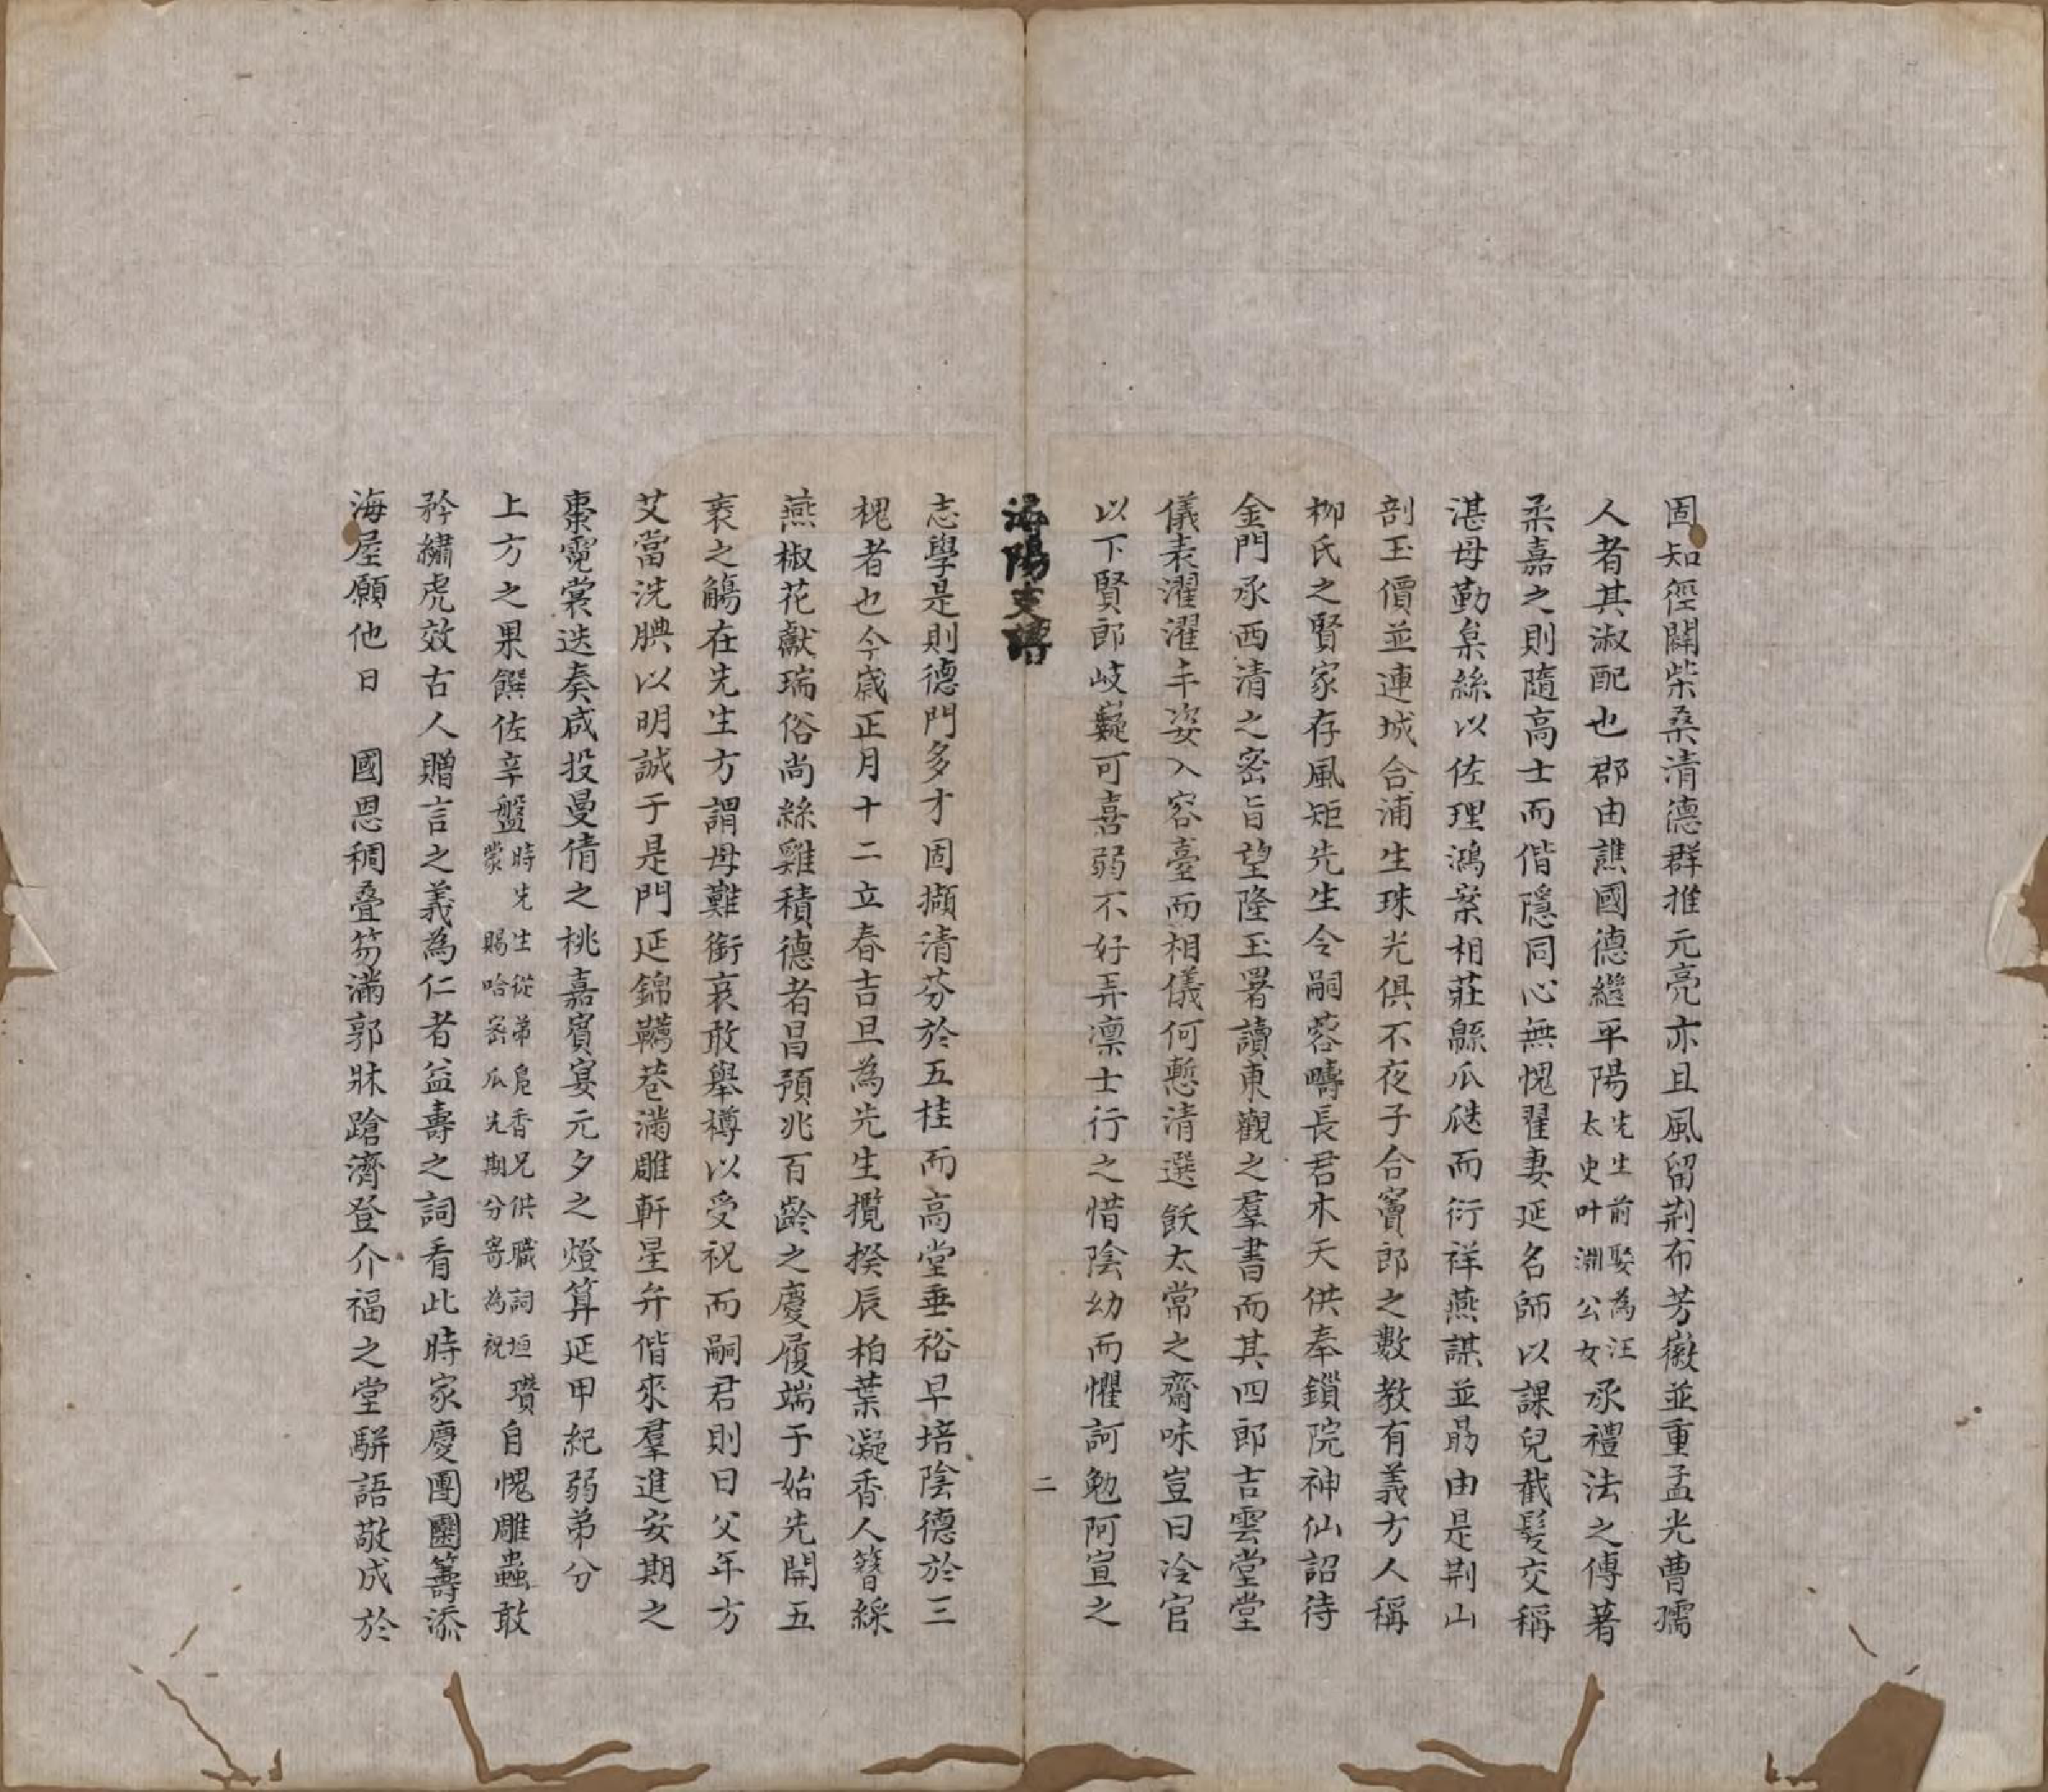 固知徑闢柴桑清德群推元亮亦且風留荆布芳徽並重孟光曹孺
人者其淑配也郡由譙國德繼平陽先生前娶為汪太史叶淵公女承禮法之傳著
柔嘉之則隨高士而偕隱同心無愧翟妻延名師以課兒截髮交稱
湛母勤枲絲以佐理鴻案相莊緜瓜瓞而衍祥燕謀並勗由是荆山
剖玉價並連城合浦生珠光俱不夜子合竇郎之數教有義方人稱
柳氏之賢家存風矩先生令嗣蓉疇長君木天供奉鎖院神仙詔待
金門承西清之密旨望隆玉署讀東觀之羣書而其四郎吉雲堂堂
儀表濯濯丰姿入容臺而相儀何慙清選飫太常之齋味豈曰冷官
以下賢郎岐嶷可喜弱不好弄凛士行之惜陰幼而懼訶勉阿宣之
海陽支譜
二
志學是則德門多才固擷清芬於五桂而高堂垂裕早培陰德於三
槐者也今歲正月十二立春吉旦為先生攬揆辰柏葉凝香人簪綵
燕椒花獻瑞俗尚絲雞積德者昌預兆百齡之慶履端于始先開五
袠之觴在先生方謂母難銜哀敢舉樽以受祝而嗣君則曰父年方
艾當洗腆以明誠于是門延錦韉巷滿雕軒星弁偕來羣進安期之
棗霓裳迭奏咸投曼倩之桃嘉賓宴元夕之燈算延甲紀弱弟分
上方之果饌佐辛盤時先生從弟扈香兄供職詞垣蒙 賜哈密瓜先期分寄為祝 瓚自愧雕蟲敢
矜繡虎效古人贈言之義為仁者益壽之詞看此時家慶團圞籌添
海屋願他日 國恩稠叠笏滿郭牀蹌濟登介福之堂駢語敬成於